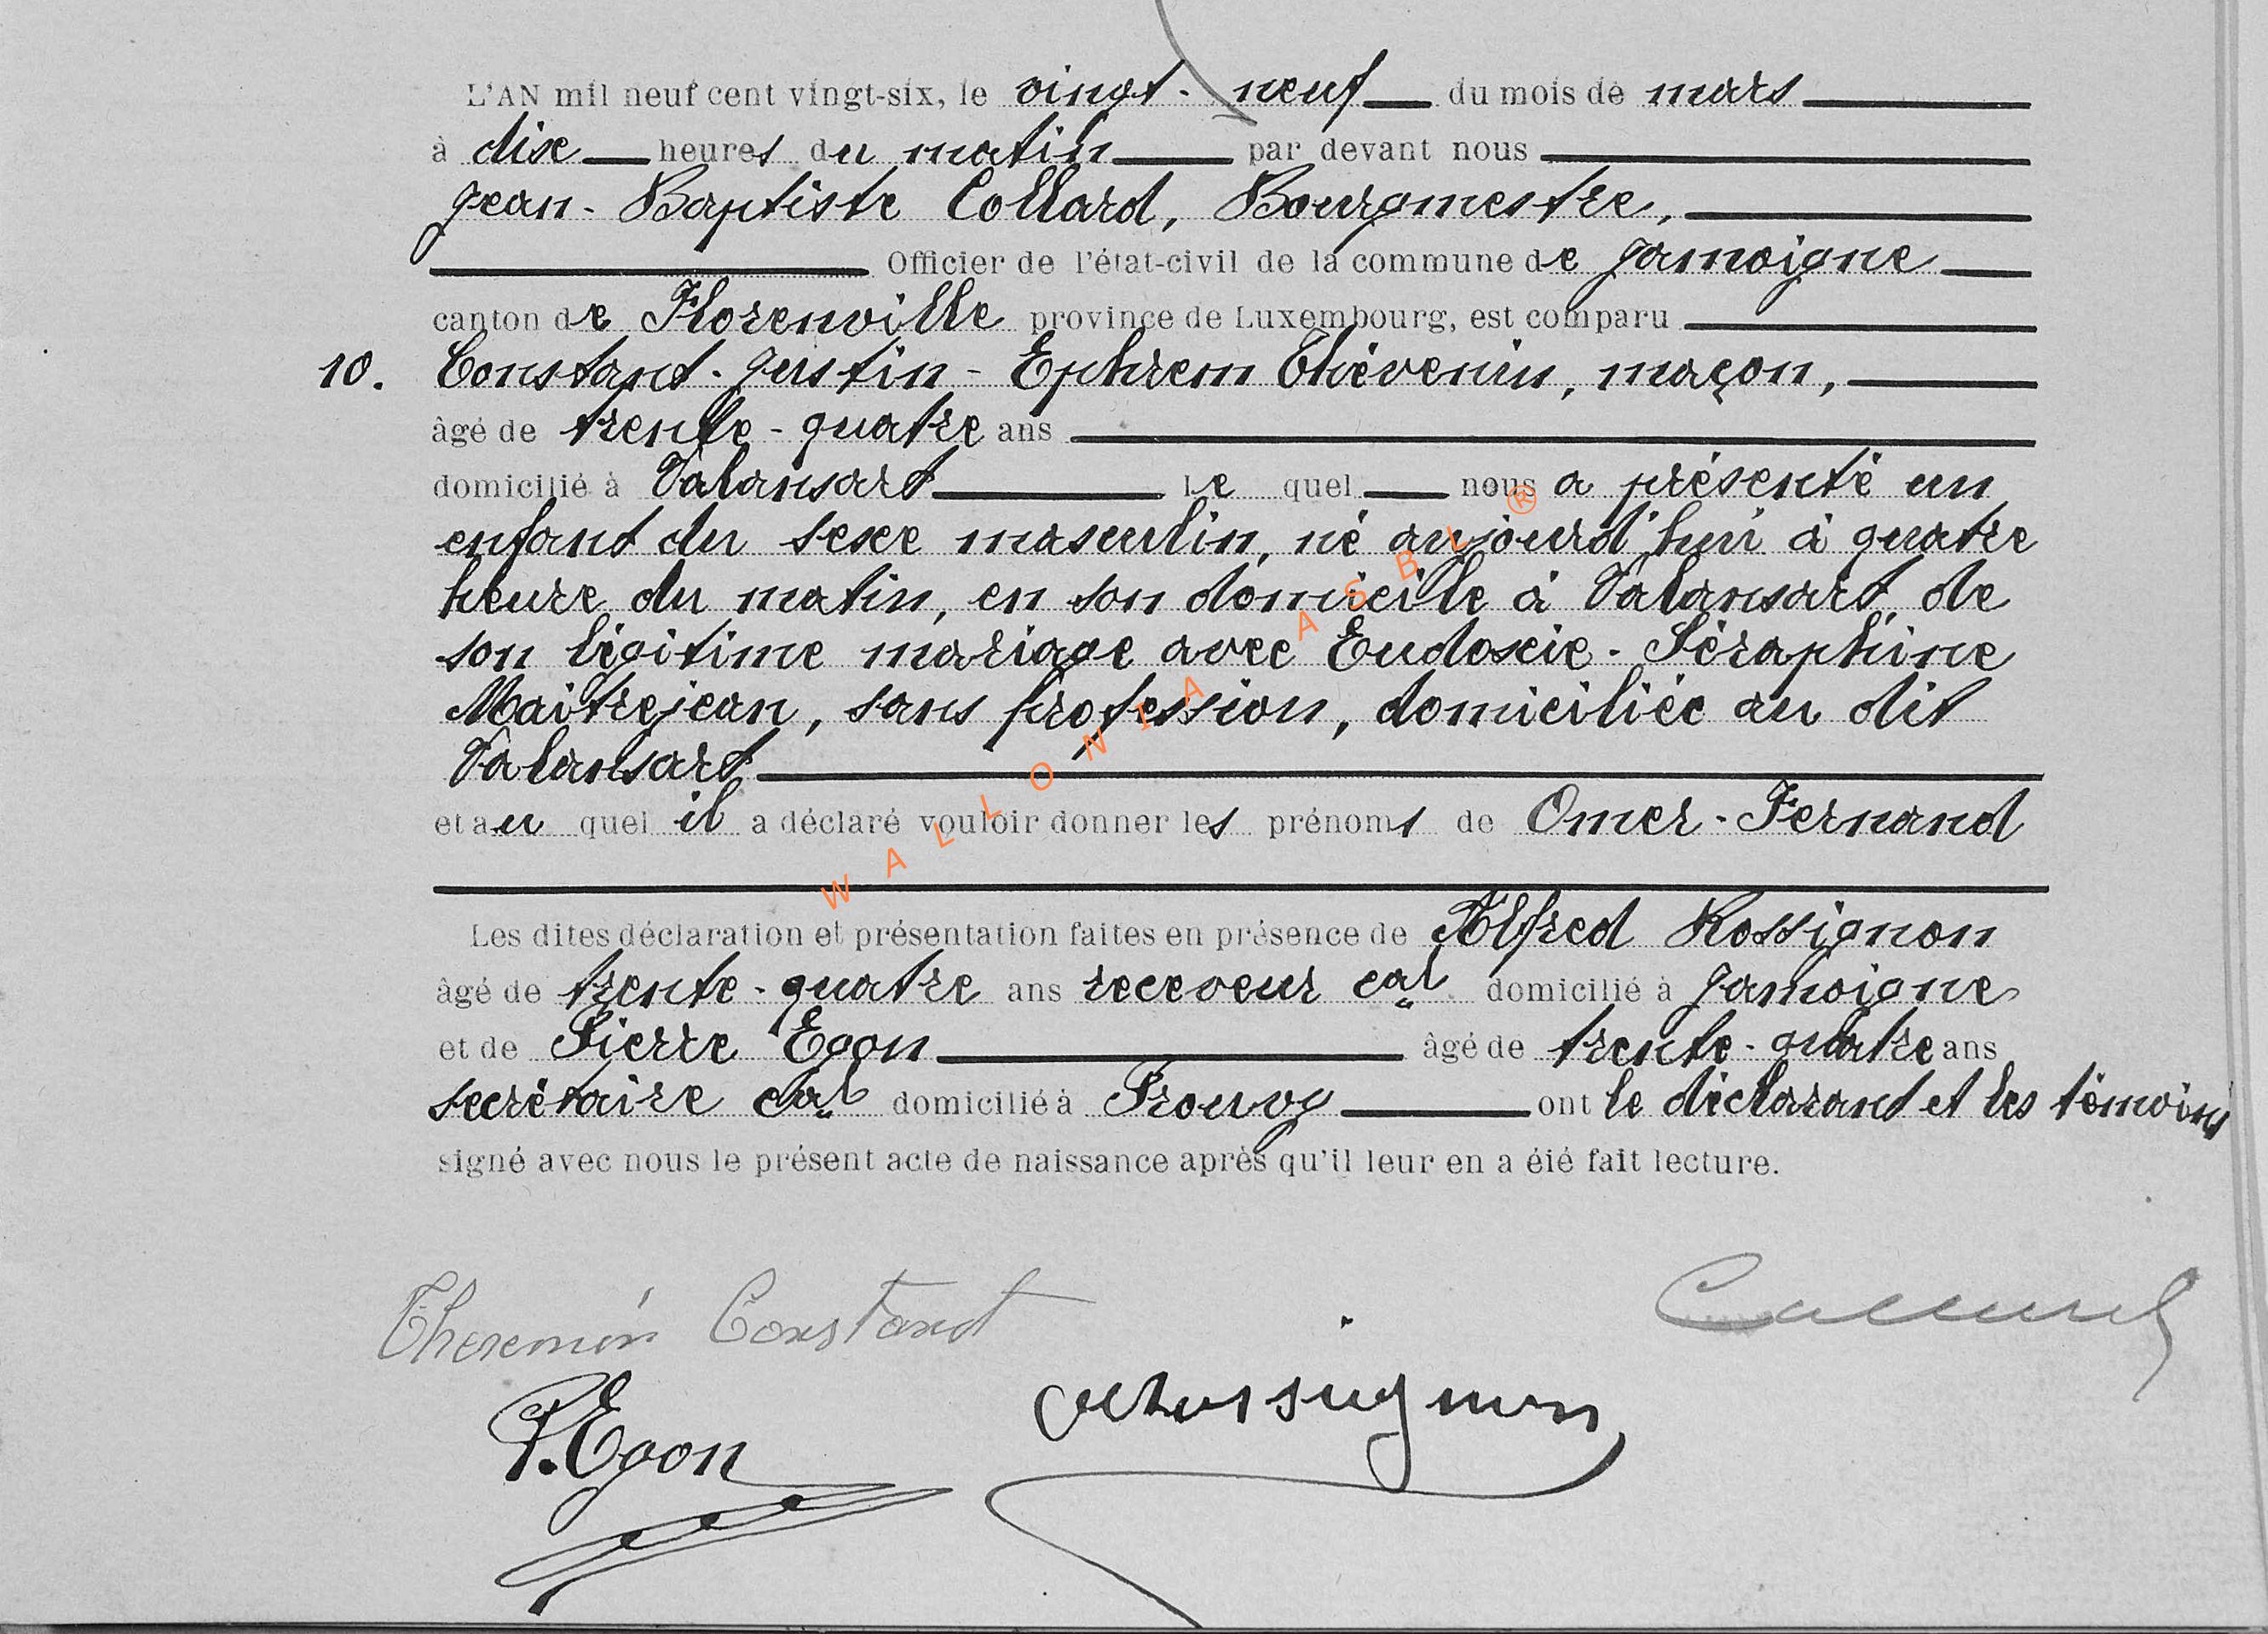 L'AN mil neuf cent vingt-six, le vingt-neuf du mois de mars
à dix heures du matin par devant nous
Jean-Baptiste Collard, Bourgmestre,
Officier de l'état-civil de la commune de Jamoigne
canton de Florenville province de Luxembourg, est comparu
10. Constant-Justin-Ephrem Thévenin, maçon,
âgé de trente-quatre ans
domicilié à Valansart lequel nous a présenté un
enfant du sexe masculin, né aujourd'hui à quatre
heure du matin, en son domicile à Valansart, de
son légitime mariage avec Eudoxie-Séraphine
Maîtrejean, sans profession, domiciliée au dit
Valansart
et auquel il a déclaré vouloir donner les prénoms de Omer-Fernand
Les dites déclaration et présentation faites en présence de Alfred Rossignon
âgé de trente-quatre ans receveur cal domicilié à Jamoigne
et de Pierre Egon âgé de trente-quatre ans
secrétaire cal domicilié à Prouvy ont le déclarant et les témoins
signé avec nous le présent acte de naissance après qu'il leur en a été fait lecture.
Thevenin Constant
P. Egon
WALLONIA ASBL ®